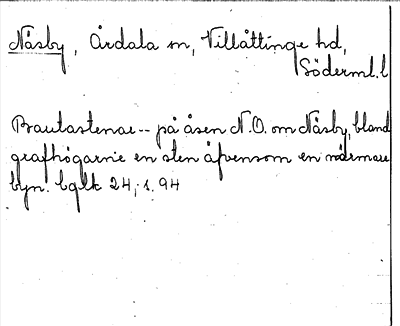 Näsby, Årdala sn, Villåttinge hd,
Söderml. l
Brautastenar -- på åsen N.O. om Näsby, bland
grafhögarne en sten äfvensom en närmare
byn. bglk 24, s. 94